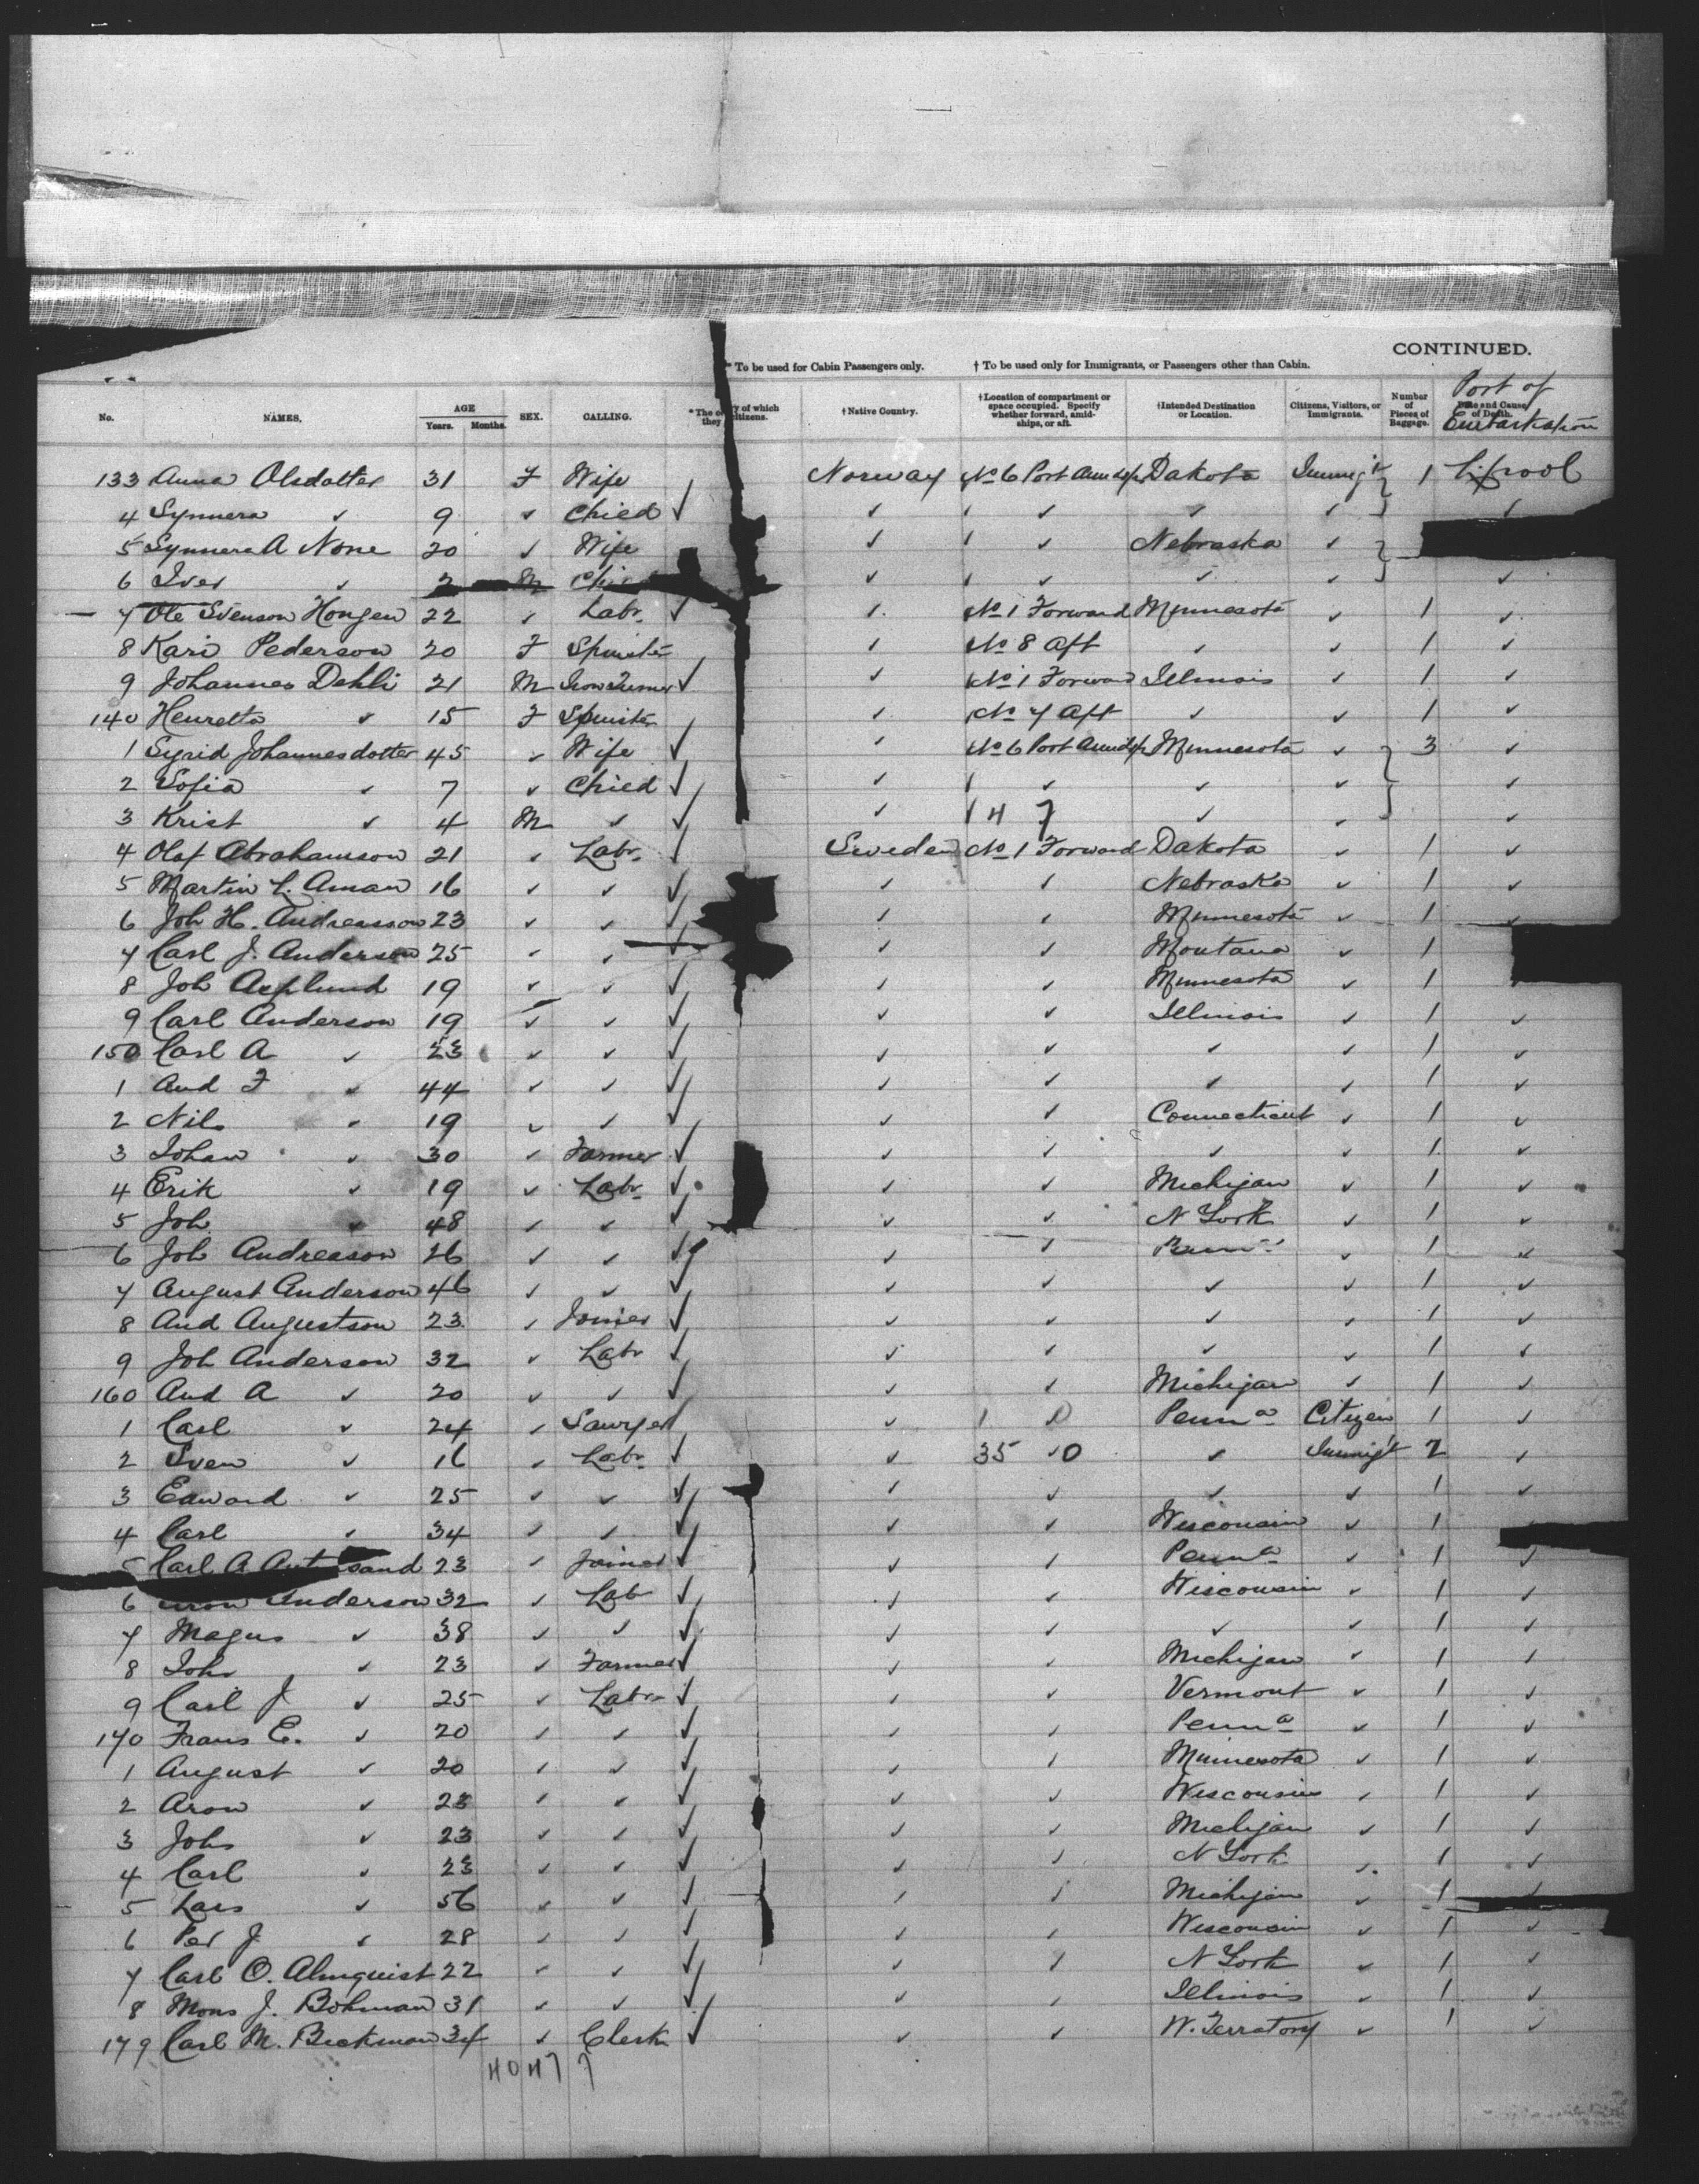 CONTINUED.
* To be used for Cabin Passengers only. † To be used only for Immigrants, or Passengers other than Cabin.
No. NAMES. AGE Years. Months. SEX. CALLING. * The of which they citizens. †Native Country. †Location of compartment or space occupied. Specify whether forward, amidships, or aft. †Intended Destination or Location. Citizens, Visitors, or Immigrants. Number of Pieces of Baggage. Date and Cause of Death. Port of Embarkation
133 Anna Olsdotter 31 F Wife Norway No 6 Port Amidsh Dakota Immigt 1 L'pool
4 Synnera ✓ 9 ✓ Child ✓ ✓ ✓ ✓ ✓ ✓
5 Synnera A None 20 ✓ Wife ✓ ✓ Nebraska ✓
6 Iver ✓ 2 M Chi ✓ ✓ ✓ ✓ ✓
7 Ole Svenson Hongen 22 ✓ Labr ✓ ✓ No 1 Forward Minnesota ✓ 1 ✓
8 Kari Pederson 20 F Spinster ✓ No 8 Aft ✓ ✓ 1 ✓
9 Johannes Dehli 21 M Iron Turner ✓ ✓ No 1 Forward Illinois ✓ 1 ✓
140 Henretta ✓ 15 F Spinster ✓ No 7 Aft ✓ ✓ 1 ✓
1 Sigrid Johannesdotter 45 ✓ Wife ✓ ✓ No 6 Port Amidsh Minnesota ✓ 3 ✓
2 Sofia ✓ 7 ✓ Child ✓ ✓ ✓ ✓ ✓ ✓
3 Krist ✓ 4 M ✓ ✓ ✓ ✓ ✓ ✓
4 Olaf Abrahamson 21 ✓ Labr ✓ Sweden No 1 Forward Dakota ✓ 1 ✓
5 Martin L. Aman 16 ✓ ✓ ✓ ✓ ✓ Nebraska ✓ 1 ✓
6 Joh H. Andreasson 23 ✓ ✓ ✓ ✓ ✓ Minnesota ✓ 1 ✓
7 Carl J. Anderson 25 ✓ ✓ ✓ ✓ ✓ Montana ✓ 1
8 Joh Asplund 19 ✓ ✓ ✓ ✓ ✓ Minnesota ✓ 1
9 Carl Anderson 19 ✓ ✓ ✓ ✓ ✓ Illinois ✓ 1 ✓
150 Carl A ✓ 23 ✓ ✓ ✓ ✓ ✓ ✓ ✓ 1 ✓
1 And F ✓ 44 ✓ ✓ ✓ ✓ ✓ ✓ ✓ 1 ✓
2 Nils ✓ 19 ✓ ✓ ✓ ✓ Connecticut ✓ 1 ✓
3 Johan ✓ 30 ✓ Farmer ✓ ✓ ✓ ✓ ✓ 1 ✓
4 Erik ✓ 19 ✓ Labr ✓ ✓ ✓ Michigan ✓ 1 ✓
5 Joh ✓ 48 ✓ ✓ ✓ ✓ ✓ N York ✓ 1 ✓
6 Joh Andreason 26 ✓ ✓ ✓ ✓ ✓ Penna ✓ 1 ✓
7 August Anderson 46 ✓ ✓ ✓ ✓ ✓ ✓ ✓ 1 ✓
8 And Augustson 23 ✓ Joiner ✓ ✓ ✓ ✓ ✓ 1 ✓
9 Joh Anderson 32 ✓ Labr ✓ ✓ ✓ ✓ ✓ 1 ✓
160 And A ✓ 20 ✓ ✓ ✓ ✓ ✓ Michigan ✓ 1 ✓
1 Carl ✓ 24 ✓ Sawyer ✓ ✓ Penna Citizen 1 ✓
2 Sven ✓ 16 ✓ Labr ✓ ✓ 35 ✓ Immigt 2 ✓
3 Edward ✓ 25 ✓ ✓ ✓ ✓ ✓ ✓ ✓ 1 ✓
4 Carl ✓ 34 ✓ ✓ ✓ ✓ ✓ Wisconsin ✓ 1
5 Carl A sand 23 ✓ Joiner ✓ ✓ ✓ Penna ✓ 1 ✓
6 Anderson 32 ✓ Lab ✓ ✓ ✓ Wisconsin ✓ 1 ✓
7 Magus ✓ 38 ✓ ✓ ✓ ✓ ✓ ✓ ✓ 1 ✓
8 John ✓ 23 ✓ Farmer ✓ ✓ ✓ Michigan ✓ 1 ✓
9 Carl J ✓ 25 ✓ Labr ✓ ✓ ✓ Vermont ✓ 1 ✓
170 Frans E. ✓ 20 ✓ ✓ ✓ ✓ ✓ Penna ✓ 1 ✓
1 August ✓ 20 ✓ ✓ ✓ ✓ ✓ Minnesota ✓ 1 ✓
2 Aron ✓ 23 ✓ ✓ ✓ ✓ ✓ Wisconsin ✓ 1 ✓
3 Johs ✓ 23 ✓ ✓ ✓ ✓ ✓ Michigan ✓ 1 ✓
4 Carl ✓ 23 ✓ ✓ ✓ ✓ ✓ N York ✓ 1 ✓
5 Lars ✓ 56 ✓ ✓ ✓ ✓ ✓ Michigan ✓ 1 ✓
6 Per J ✓ 28 ✓ ✓ ✓ ✓ ✓ Wisconsin ✓ 1 ✓
7 Carl O. Almquist 22 ✓ ✓ ✓ ✓ ✓ N York ✓ 1 ✓
8 Mons J. Bohman 31 ✓ ✓ ✓ ✓ ✓ Illinois ✓ 1 ✓
179 Carl M. Beckman 34 ✓ Clerk ✓ ✓ ✓ W. Terratory ✓ 1 ✓